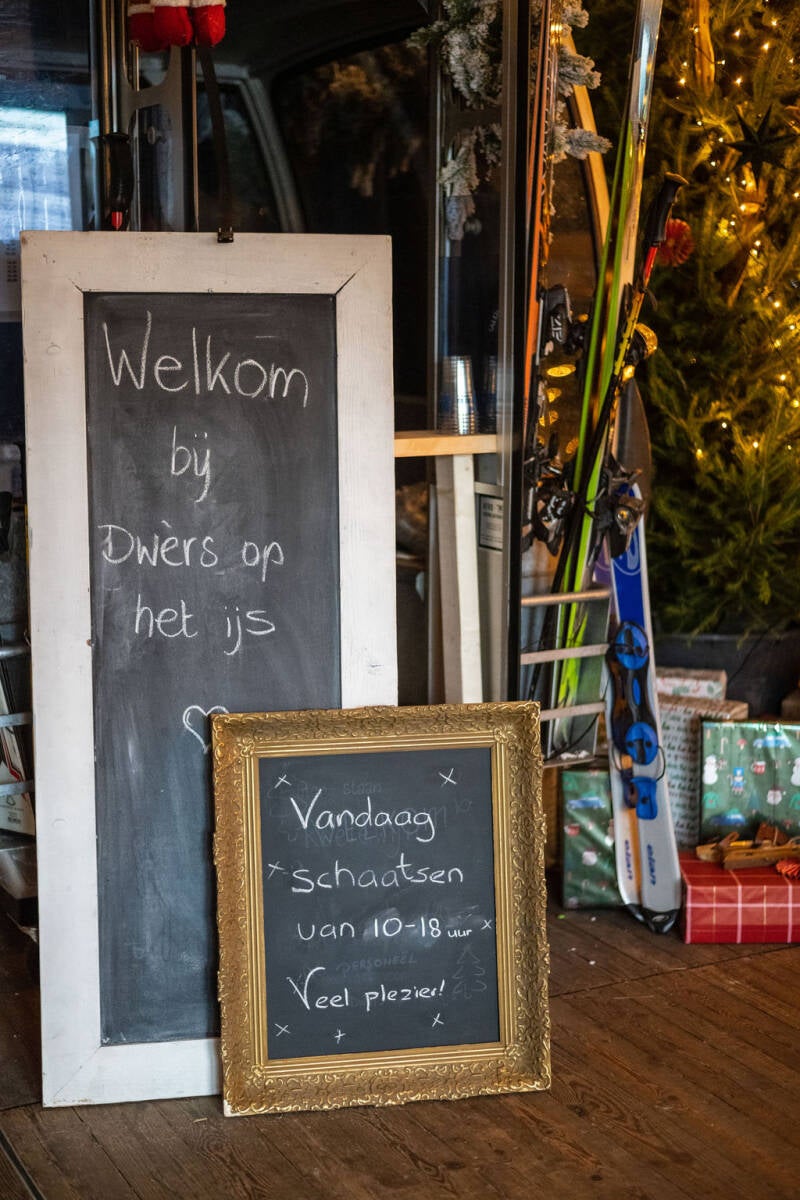 Welkom
bij
Dwèrs op
het ijs
Vandaag
schaatsen
van 10-18 uur
PERSONEEL
Veel plezier!